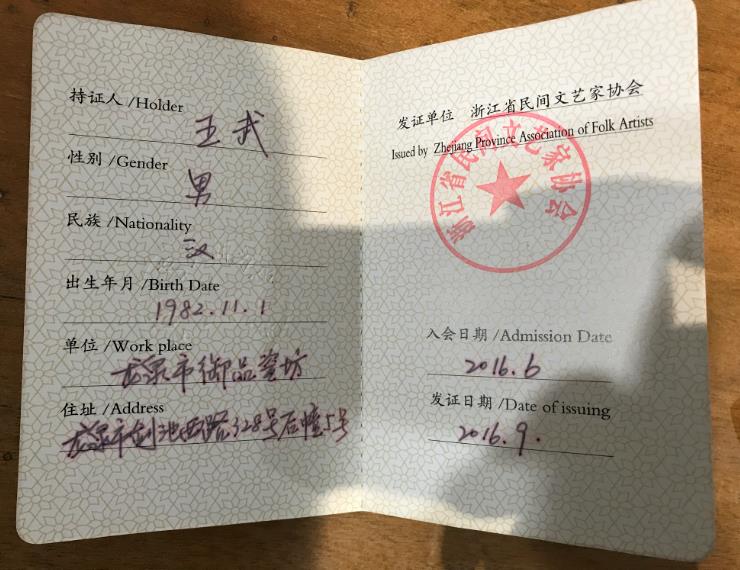 持证人 /Holder
王武
性别 /Gender
男
民族 /Nationality
汉
出生年月 /Birth Date
1982.11.1
单位 /Work place
龙泉市御品瓷坊
住址 /Address
龙泉市剑池西路328号后幢5号
发证单位 浙江省民间文艺家协会
Issued by Zhejiang Province Association of Folk Artists
浙江省民间文艺家协会
入会日期 /Admission Date
2016.6
发证日期 /Date of issuing
2016.9.